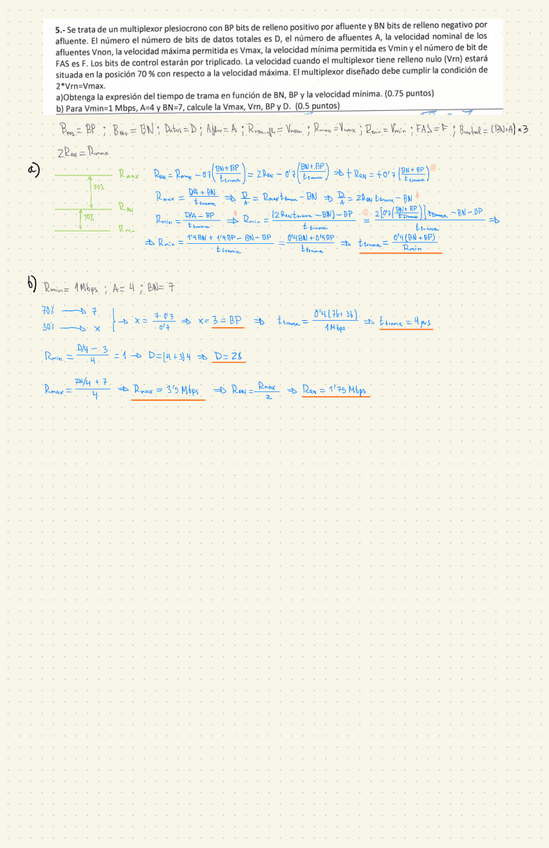 5.- Se trata de un multiplexor plesiocrono con BP bits de relleno positivo por afluente y BN bits de relleno negativo por
afluente. El número el número de bits de datos totales es D, el número de afluentes A, la velocidad nominal de los
afluentes Vnon, la velocidad máxima permitida es Vmax, la velocidad mínima permitida es Vmin y el número de bit de
FAS es F. Los bits de control estarán por triplicado. La velocidad cuando el multiplexor tiene relleno nulo (Vrn) estará
situada en la posición 70 % con respecto a la velocidad máxima. El multiplexor diseñado debe cumplir la condición de
2*Vrn=Vmax.
a)Obtenga la expresión del tiempo de trama en función de BN, BP y la velocidad mínima. (0.75 puntos)
b) Para Vmin=1 Mbps, A=4 y BN=7, calcule la Vmax, Vrn, BP y D. (0.5 puntos)
= BP ; = BN ; Datos = D ; = A ; = ; Rmax = Vmax ; Rmin = Vmin ; FAS = F ; = (BN·A) × 3
2RRN = Rmax
a)
Rmax
70%
RRN
30%
Rmin
RRN = Rmax - 0'7 (BN+BP / ttrama) = 2RRN - 0'7 (BN+BP / ttrama) ⇒ + RRN = +0'7 (BN+BP / ttrama)
Rmax = D/A + BN / ttrama ⇒ D/A = Rmax ttrama - BN ⇒ D/A = 2RRN ttrama - BN
Rmin = D/A - BP / ttrama ⇒ Rmin = (2RRN ttrama - BN) - BP / ttrama = 2[0'7(BN+BP / ttrama)] ttrama - BN - BP / ttrama ⇒
⇒ Rmin = 1'4BN + 1'4BP - BN - BP / ttrama = 0'4BN + 0'4BP / ttrama ⇒ ttrama = 0'4(BN+BP) / Rmin
b) Rmin = 1Mbps ; A = 4 ; BN = 7
70% → 7
30% → x
→ x = 7·0'3 / 0'7 ⇒ x = 3 = BP ⇒ ttrama = / 1Mbps ⇒ ttrama = 4 μs
Rmin = D/4 - 3 / 4 = 1 → D = (4+3)4 ⇒ D = 28
Rmax = 28/4 + 7 / 4 ⇒ Rmax = 3'5 Mbps ⇒ RRN = Rmax / 2 ⇒ RRN = 1'75 Mbps